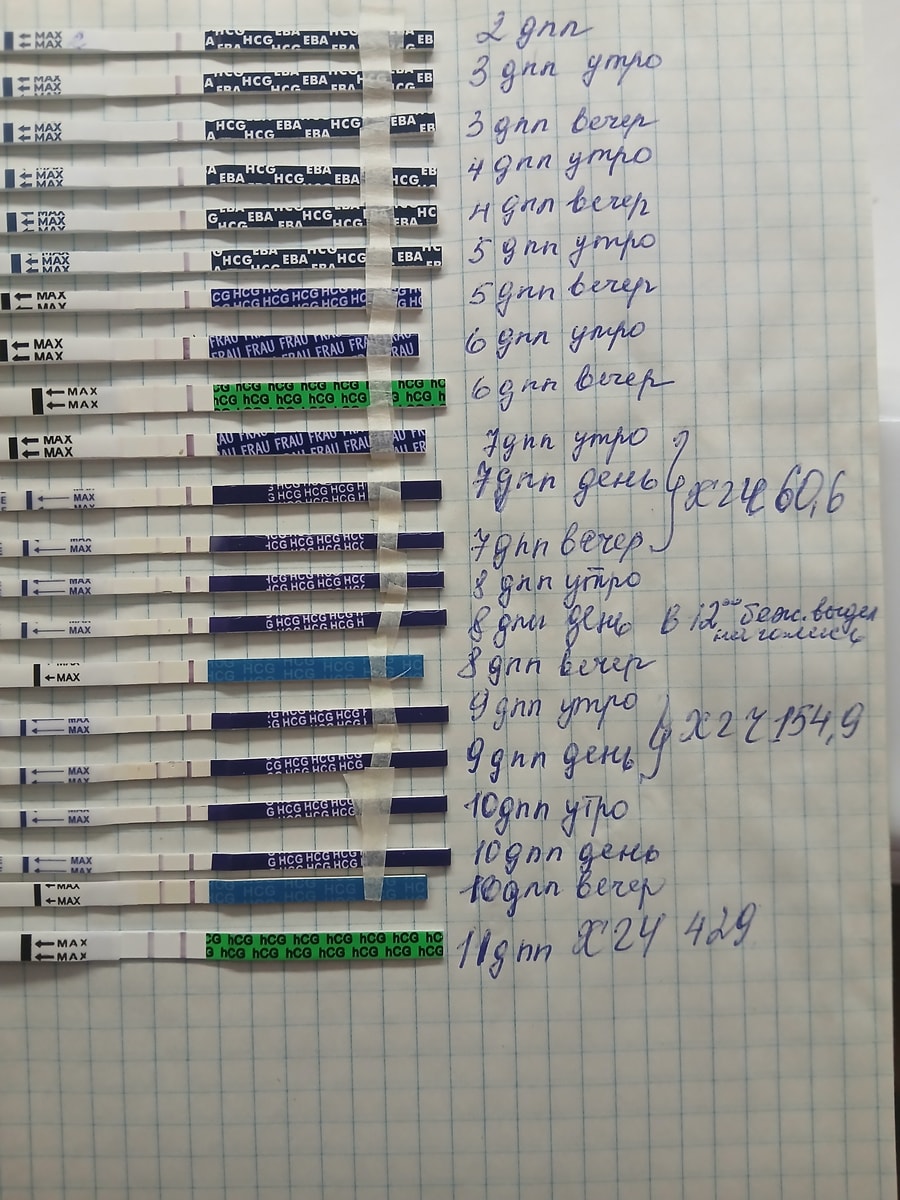 MAX MAX HCG EBA HCG EBA 2 дпп
MAX MAX HCG EBA HCG EBA 3 дпп утро
MAX MAX HCG HCG EBA EBA HCG HCG EB 3 дпп вечер
MAX MAX EBA HCG HCG EBA EBA HCG HCG 4 дпп утро
MAX MAX HCG EBA EBA HCG HCG EBA HC 4 дпп вечер
MAX MAX HCG EBA EBA HCG HCG EBA 5 дпп утро
MAX MAX CG HCG HCG HCG HCG 5 дпп вечер
MAX MAX FRAU FRAU FRAU FRAU 6 дпп утро
MAX MAX hCG hCG hCG hCG hCG hCG 6 дпп вечер
MAX MAX AU FRAU FRAU FRAU 7 дпп утро
MAX G HCG HCG HCG 7 дпп день } ХГЧ 60,6
MAX HCG HCG HCG HCC 7 дпп вечер
MAX HCG HCG HCG HCC 8 дпп утро
MAX HCG HCG HCG 8 дпп день в 12⁰⁰ беж. выдел
MAX HCG 8 дпп вечер
MAX G HCG HCG HCG 9 дпп утро } ХГЧ 154,9
MAX CG HCG HCG HCG 9 дпп день
MAX G HCG HCG HCG 10 дпп утро
MAX G HCG HCG HCG 10 дпп день
MAX MAX HCG 10 дпп вечер
MAX MAX CG hCG hCG hCG hCG hCG hC 11 дпп ХГЧ 429